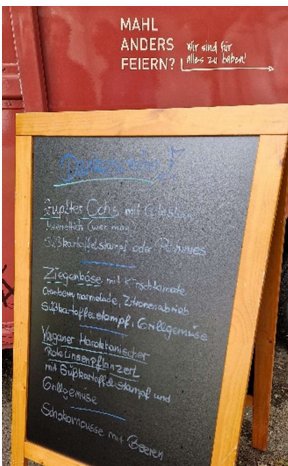 MAHL
ANDERS
FEIERN?
Wir sind für
alles zu haben!
Pulled Ochs mit Coleslaw
Süßkartoffelstampf oder Pommes
Ziegenkäse mit Kirschtomate
Cranberrymarmelade, Zitronenabrieb
Süßkartoffelstampf, Grillgemüse
Veganer Marokkanischer
Rote Linsenpflanzerl
mit Süßkartoffelstampf und
Grillgemüse
Schokomousse mit Beeren